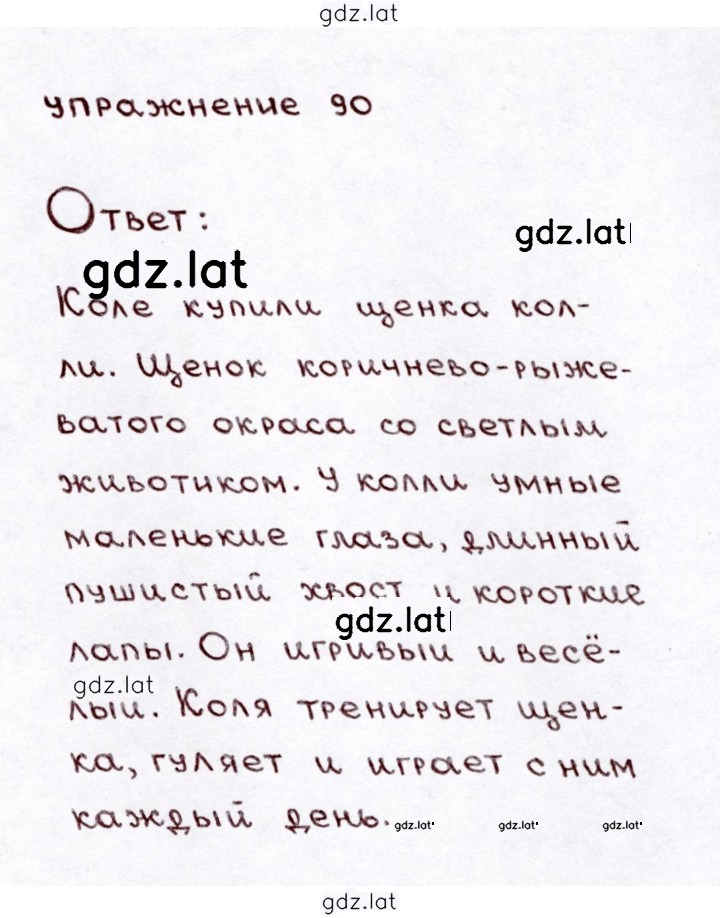 gdz.lat
упражнение 90
Ответ:
gdz.lat
gdz.lat
Коле купили щенка кол-
ли. Щенок коричнево-рыже-
ватого окраса со светлым
животиком. У колли умные
маленькие глаза, длинный
пушистый хвост и короткие
gdz.lat
лапы. Он игривый и весё-
gdz.lat
лый. Коля тренирует щен-
ка, гуляет и играет с ним
каждый день.
gdz.lat gdz.lat gdz.lat
gdz.lat